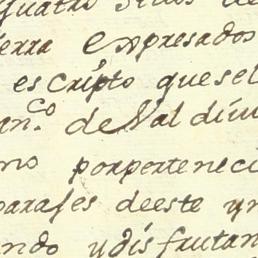 quatro sitios de
ierra expresados
escripto que sel
an.co de Valdiui
no porperteneci
parajes deeste yn
ando ydisfrutan